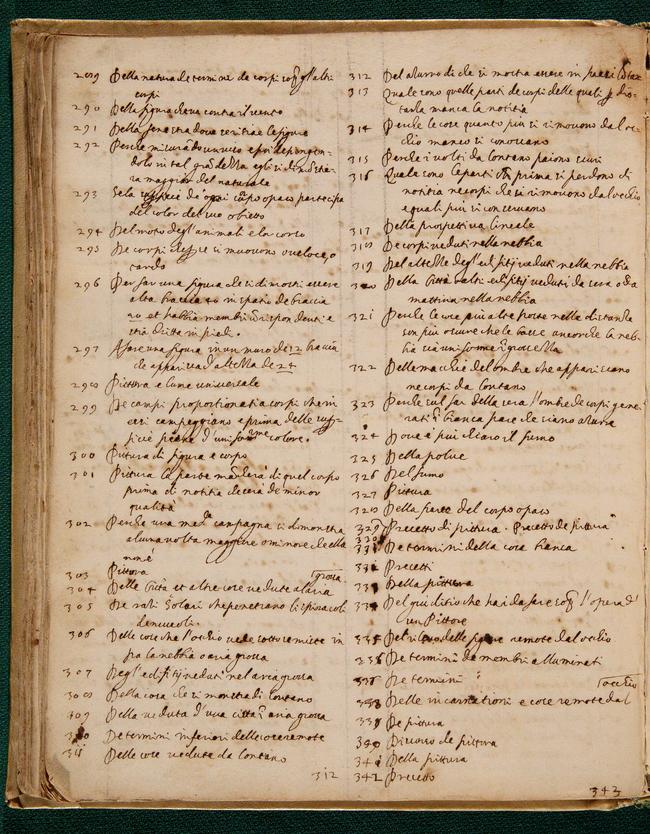 289 Della natura de termini de corpi sopra gl'altri
corpi
290 Della figura che va contra il vento
291 Della fenestra dove ritrae le figure
292 Perche misurando un viso e poi dipingen-
dolo in tal grandezza egli si dimostra-
ra maggior del naturale
293 Se la superficie d'ogni corpo opaco partecipa
del color del suo obietto
294 Del moto degl'animali e lor corso
295 De corpi che se si muovono o veloce, o
tardo
296 Per far una figura che si dimostri essere
alta braccia 40 in spatio de braccia
20 et habbia membri corrispondenti e
stia dritta in piedi.
297 A fare una figura in un muro de 12 braccia
che apparisca d'altezza de 24
298 Pittura e lume universale
299 De campi proportionati a corpi che in
essi campeggiano e prima delle super-
ficie piane d'uniforme colore.
300 Pittura di figura e corpo
301 Pittura la parte mancherà di quel corpo
prima di notitia che sera de minor
qualità
302 Perche una medesima campagna si dimostra
alcuna volta maggiore o minore che ella
non è
303 Pittura
304 Delle Città et altre cose vedute al'aria grossa
305 De rati Solari che penetrano li spiracoli
de nuvoli.
306 Delle cose che l'occhio vede sotto se miste in
fra la nebbia o aria grossa
307 Degl'edifitij veduti nel aria grossa
308 Della cosa che si mostra di lontano
309 Della veduta d'una città in aria grossa
310 De termini inferiori delle cose remote
311 Delle cose vedute da lontano
312
312 Del azurro di che si mostra essere in paesi lontani
313 Quale sono quelle parti de corpi delle quali per dis-
tantia manca la notitia
314 Perche le cose quanto più si rimovono dal'oc-
chio manco si conoscano
315 Perche i volti da lontano paiono scuri
316 Quale sono le parti che prima si perdono di
notitia ne corpi che si rimovono dal'occhio
e quali più si conservano
317 Della prospettiva lineale
318 De corpi veduti nella nebbia
319 Del altezze degl'edifitij veduti nella nebbia
320 Della Città ed altri edifitij veduti da sera o da
mattina nella nebbia
321 Perche le cose più alte poste nella distantia
son più oscure che le basse ancorche la neb-
bia sia uniforme in grossezza
322 Delle macchie de l'ombre che appariscano
ne corpi da lontano
323 Perche sul far della sera l'ombre de corpi gene-
rati in bianca parete siano azurre
324 Dove è più chiaro il fumo
325 Della polve
326 Del fumo
327 Pittura
328 Della parte del corpo opaco
329 Precetto di pittura. Precetto di pittura
330
331 De termini della cosa bianca
332 Precetti
333 Della pittura
334 Del giuditio che hai da fare sopra l'opera d'
un Pittore
335 Del rilievo delle figure remote dal'occhio
336 De termini de membri alluminati
337 De termini
338 Delle incarnationi e cose remote dal occhio
339 De pittura
340 Discorso de pittura
341 Della pittura
342 Precetto
343